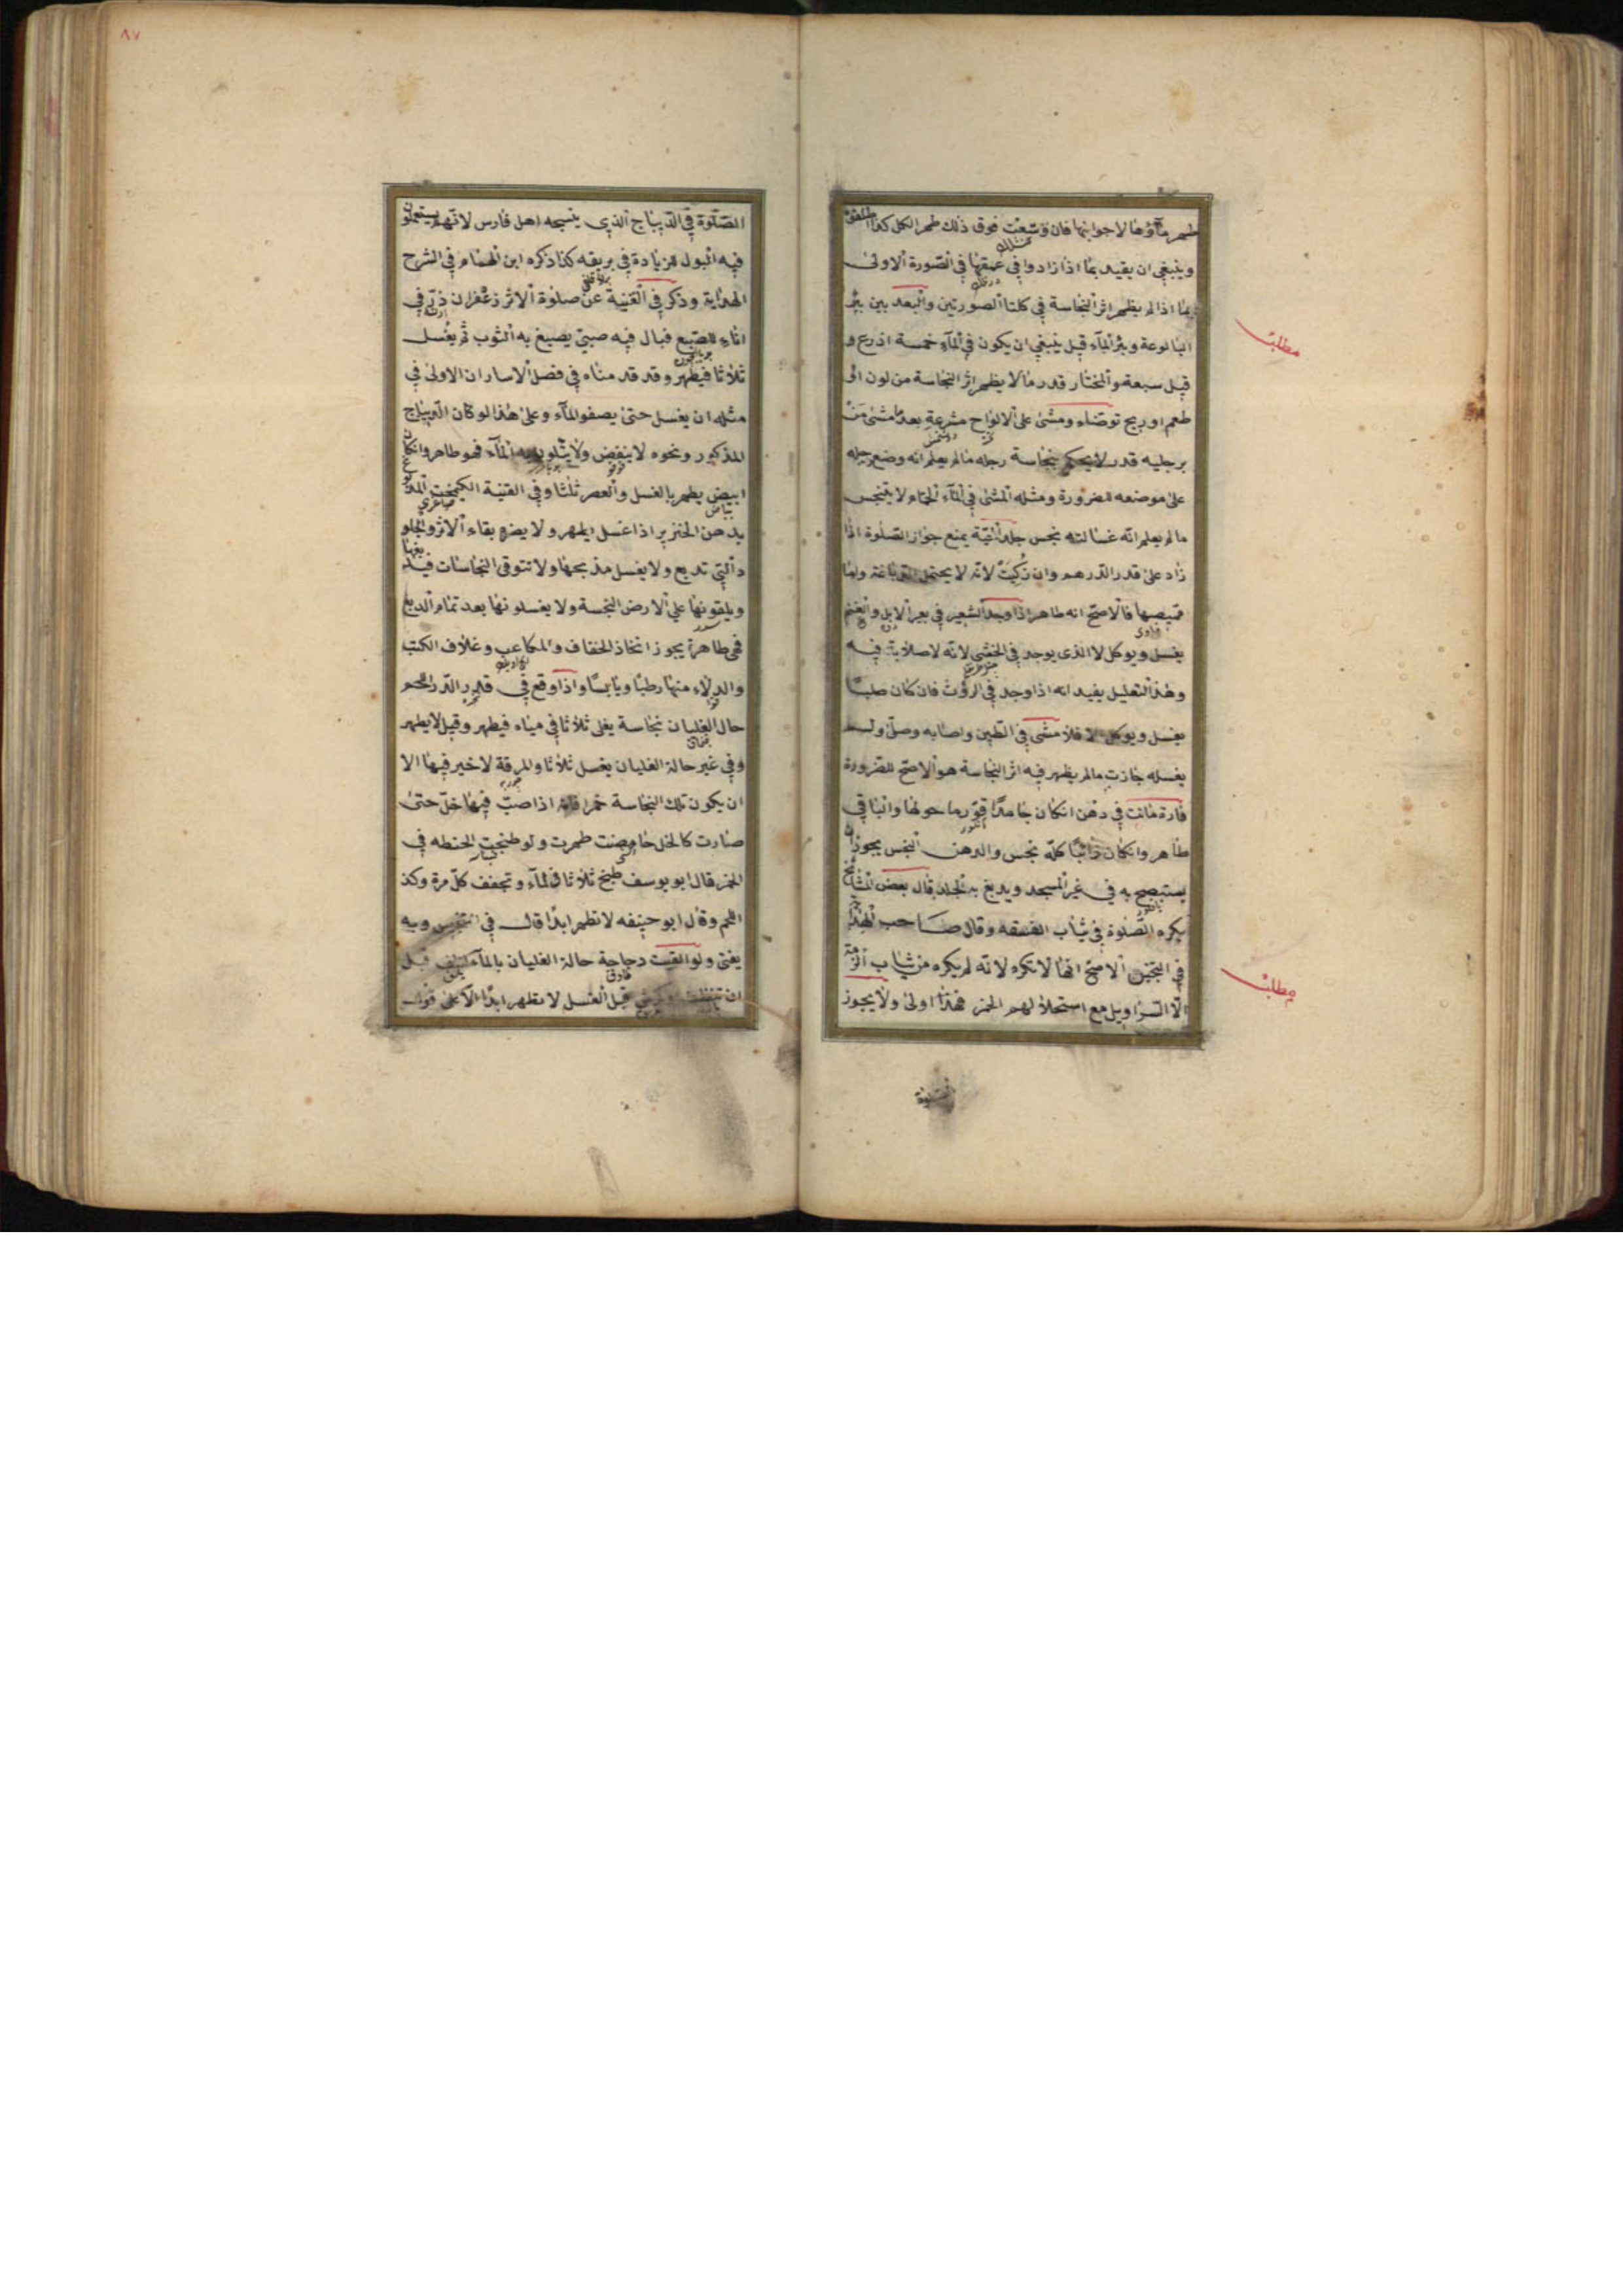 طهر ماؤها لا جوانبها فان وسّعت فوق ذلك طهر الكل كذا اطلقوا
وينبغي ان يقيد بما اذا زادوا في عمقها في الصورة الاولى
بما اذا لم يظهر اثر النجاسة في كلتا الصورتين والبعد بين بئر
البالوعة وبئر الماء قيل ينبغي ان يكون في الماء خمسة اذرع و
قيل سبعة والمختار قدر ما لا يظهر اثر النجاسة من لون او
طعم او ريح توضاء ومشى على الالواح مشرعة بعد ما مشى من
برجليه قدر لا يحكم بنجاسة رجله ما لم يعلم انه وضع رجله
على موضعه للضرورة ومثله المشى في الماء الحمام لا يتنجس
ما لم يعلم انه غسالته نجس جلد الحيّة يمنع جواز الصلوة اذا
زاد على قدر الدرهم وان زكيت لانه لا يحتمل الدباغة واما
قميصها فالاصح انه طاهر اذا وجد الشعير في بعر الابل والغنم
يغسل ويوكل لا الذى يوجد في الخثى لانه لا صلابة فيه
وهذا التعليل يفيد انه اذا وجد في الروث فان كان صلبا
يغسل ويوكل والا فلا مشى في الطين واصابه وصلى ولم
يغسله جازت ما لم يظهر فيه اثر النجاسة هو الاصح للضرورة
فارة ماتت في دهن انكان جامدا قوّر ما حولها والباقي
طاهر وانكان ذائبا كلّه نجس والدهن النجس يجوز ان
يستصبح به في غير المسجد ويدبغ به الجلد قال بعض المشايخ
يكره الصلوة في ثياب الفسقه وقال صاحب الهداية
في التجنيس الاصح انها لا تكره لانه لم يكره من ثياب الذمة
الا السراويل مع استحلالهم الخمر فهذا اولى ولا يجوز
الصلوة
مطلب
مطلب
٨٧
الصّلوة في الديباج الذي ينسجه اهل فارس لانهم يستعملون
فيه البول للزيادة في بريقه كذا ذكره ابن الهمام في الشرح
الهداية وذكر في القنية عن صلوة الاثر زعفران ذرّ في
اناء للصبغ فبال فيه صبيّ يصبغ به الثوب ثم يغسل
ثلاثا فيطهر وقد قدمناه في فصل الاسار ان الاولى في
مثله ان يغسل حتى يصفو الماء وعلى هذا لو كان الديباج
المذكور ونحوه لا ينقض ولا يتلون به الماء فهو طاهر وانكان
ابيض يطهر بالغسل والعصر ثلثا وفي القنية الكيمخت المدبوغ
بدهن الخنزير اذا غسل يطهر ولا يضر بقاء الاثر والجلود
التي تدبغ ولا يغسل مذبحها ولا تتوقى النجاسات في دبغها
ويلقونها على الارض النجسة ولا يغسلونها بعد تمام الدبغ
فهى طاهرة يجوز اتخاذ الخفاف والمكاعب وغلاف الكتب
والدلاء منها رطبا ويابسا واذا وقع في قدر اللحم
حال الغليان نجاسة يغلى ثلاثا في مياه فيطهر وقيل لا يطهر
وفي غير حالة الغليان يغسل ثلاثا والمرقة لا خير فيها الا
ان يكون تلك النجاسة خمرا فانه اذا صبّ فيها خلّ حتى
صارت كالخل حامضت طهرت ولو طبخت الحنطه في
الخمر قال ابو يوسف طبخ ثلاثا في الماء وتجفف كل مرة وكذا
اللحم وقال ابو حنيفه لا تطهر ابدا قال في التجنيس وبه
يفتى ولو القيت دجاجة حالة الغليان بالماء قبل
ان قبل الغسل لا تطهر ابدا الا على قول